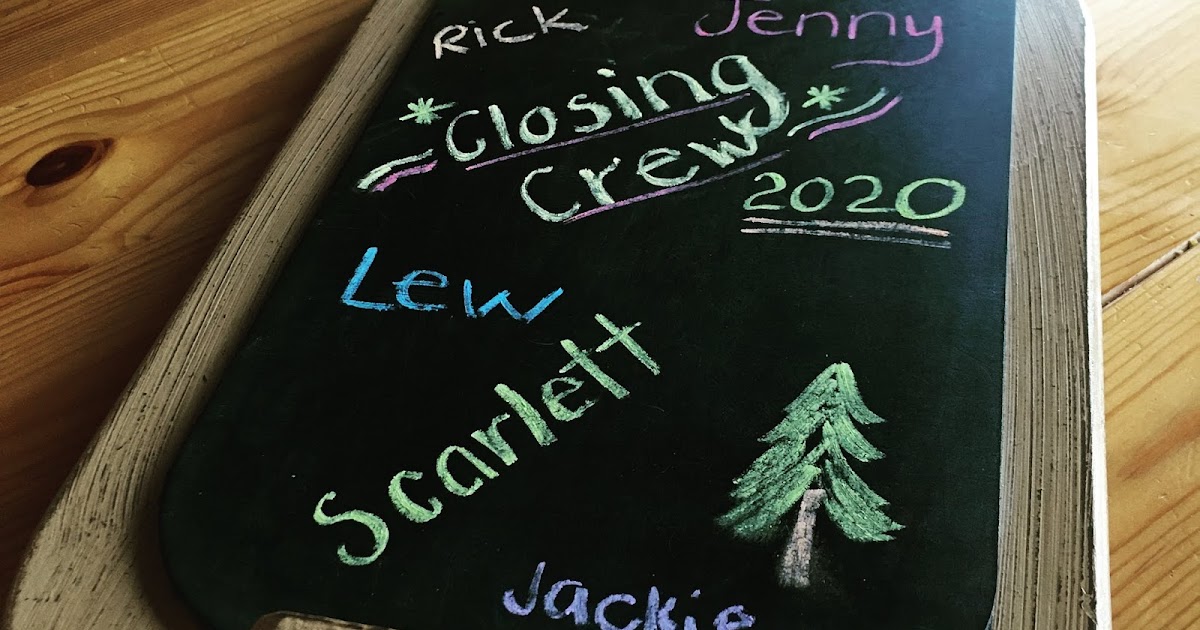 Rick Jenny
*Closing*
Crew
2020
Lew
Scarlett
Jackie